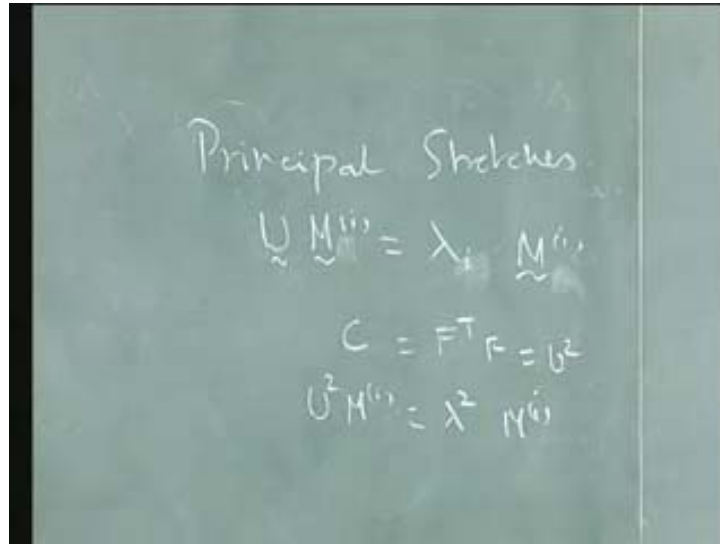 Principal Stretches
U M⁽ⁱ⁾ = λᵢ M⁽ⁱ⁾
C = Fᵀ F = U²
U² M⁽ⁱ⁾ = λ² M⁽ⁱ⁾